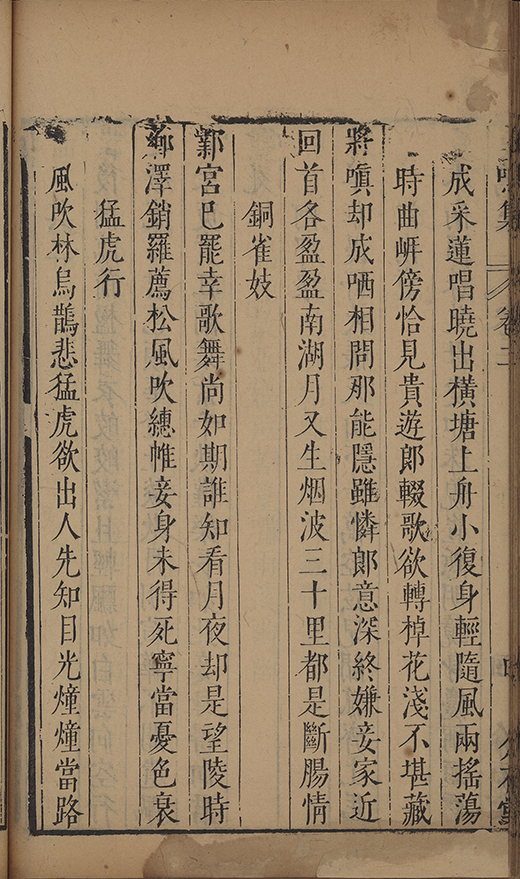 集 卷二
成采蓮唱曉出橫塘上舟小復身輕隨風兩搖蕩
時曲岍傍恰見貴遊郎輟歌欲轉棹花淺不堪藏
將嗔却成哂相問那能隱雖憐郎意深終嫌妾家近
回首各盈盈南湖月又生烟波三十里都是斷腸情
銅雀妓
鄴宮巳罷幸歌舞尚如期誰知看月夜却是望陵時
薌澤銷羅薦松風吹繐帷妾身未得死寧當憂色衰
猛虎行
風吹林烏鵲悲猛虎欲出人先知目光爞爞當路